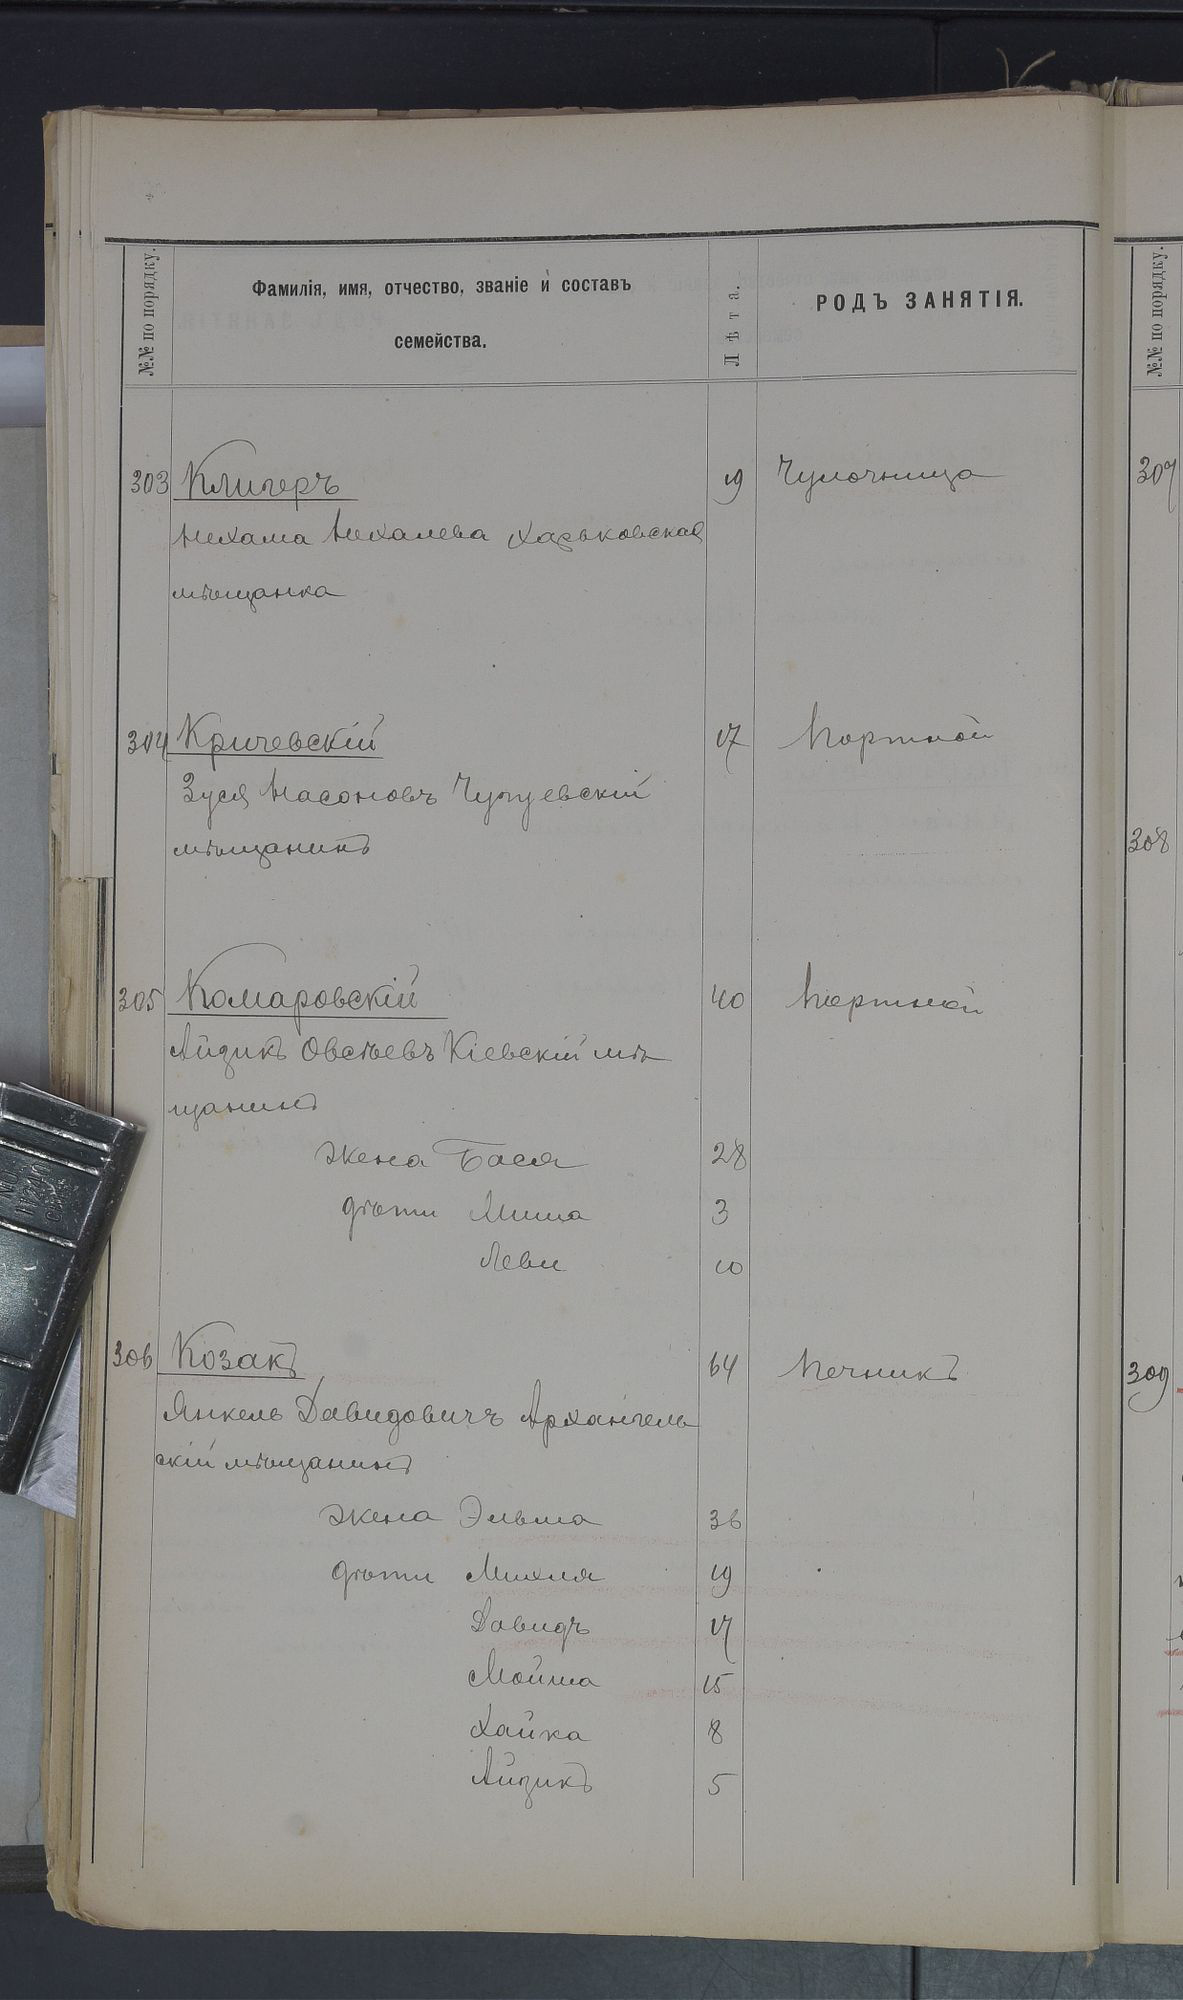 №№ по порядку.
Фамилія, имя, отчество, званіе и составъ
семейства.
Лѣта.
РОДЪ ЗАНЯТІЯ.
303 Клигеръ 19 Чулочница
Нехама Нехалева Харьковская
мѣщанка
304 Кричевскій 17 Портной
Зуся Насоновъ Чугуевскій
мѣщанинъ
305 Комаровскій 40 Портной
Айзикъ Овсѣевъ Кіевскій мѣ
щанинъ
жена Бася 28
дѣти Миша 3
Леви 10
306 Козакъ 64 Печникъ
Янкель Давидовичъ Архангель
скій мѣщанинъ
жена Эльма 36
дѣти Михля 19
Давидъ 17
Мойша 15
Хайка 8
Айзикъ 5
№№ по порядку.
307
308
309